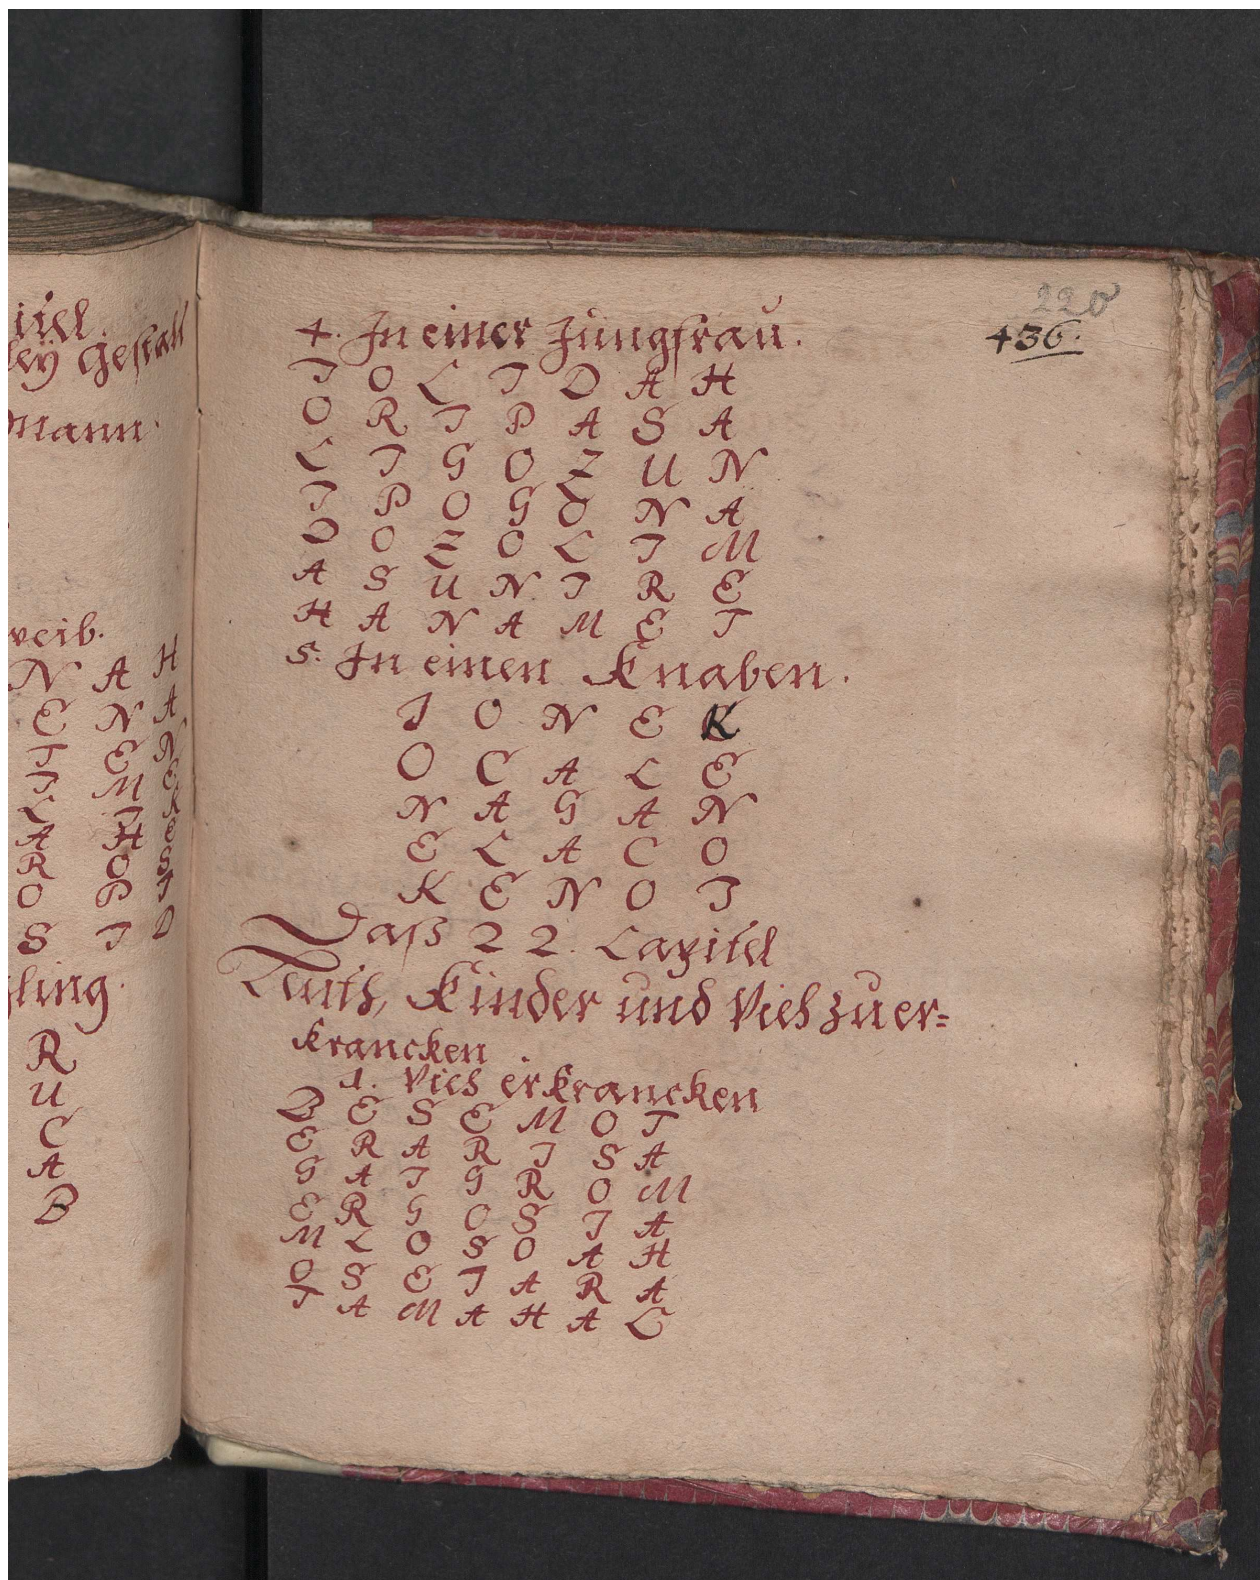 itel.
ley Gestalt
Mann.
weib.
N A H
E N A
T E N
I M E
L I K
A H E
R O S
O P I
S I D
gling.
R
U
C
A
B
220
436.
4. In einer Jungfrau.
I O L I D A H
O R I P A S A
L I G O Z U N
I P O G O N A
D O Z O L I M
A S U N I R E
H A N A M E T
5. In einen Knaben.
I O N E K
O C A L E
N A G A N
E L A C O
K E N O I
Daß 22. Capitel
Leuth, Kinder und Vieh zu er=
krancken.
1. Vieh erkrancken
B E S E M O T
E R A R I S A
G A I G R O M
E R G O S I A
M L O S O A H
O S E I A R A
T A M A H A C